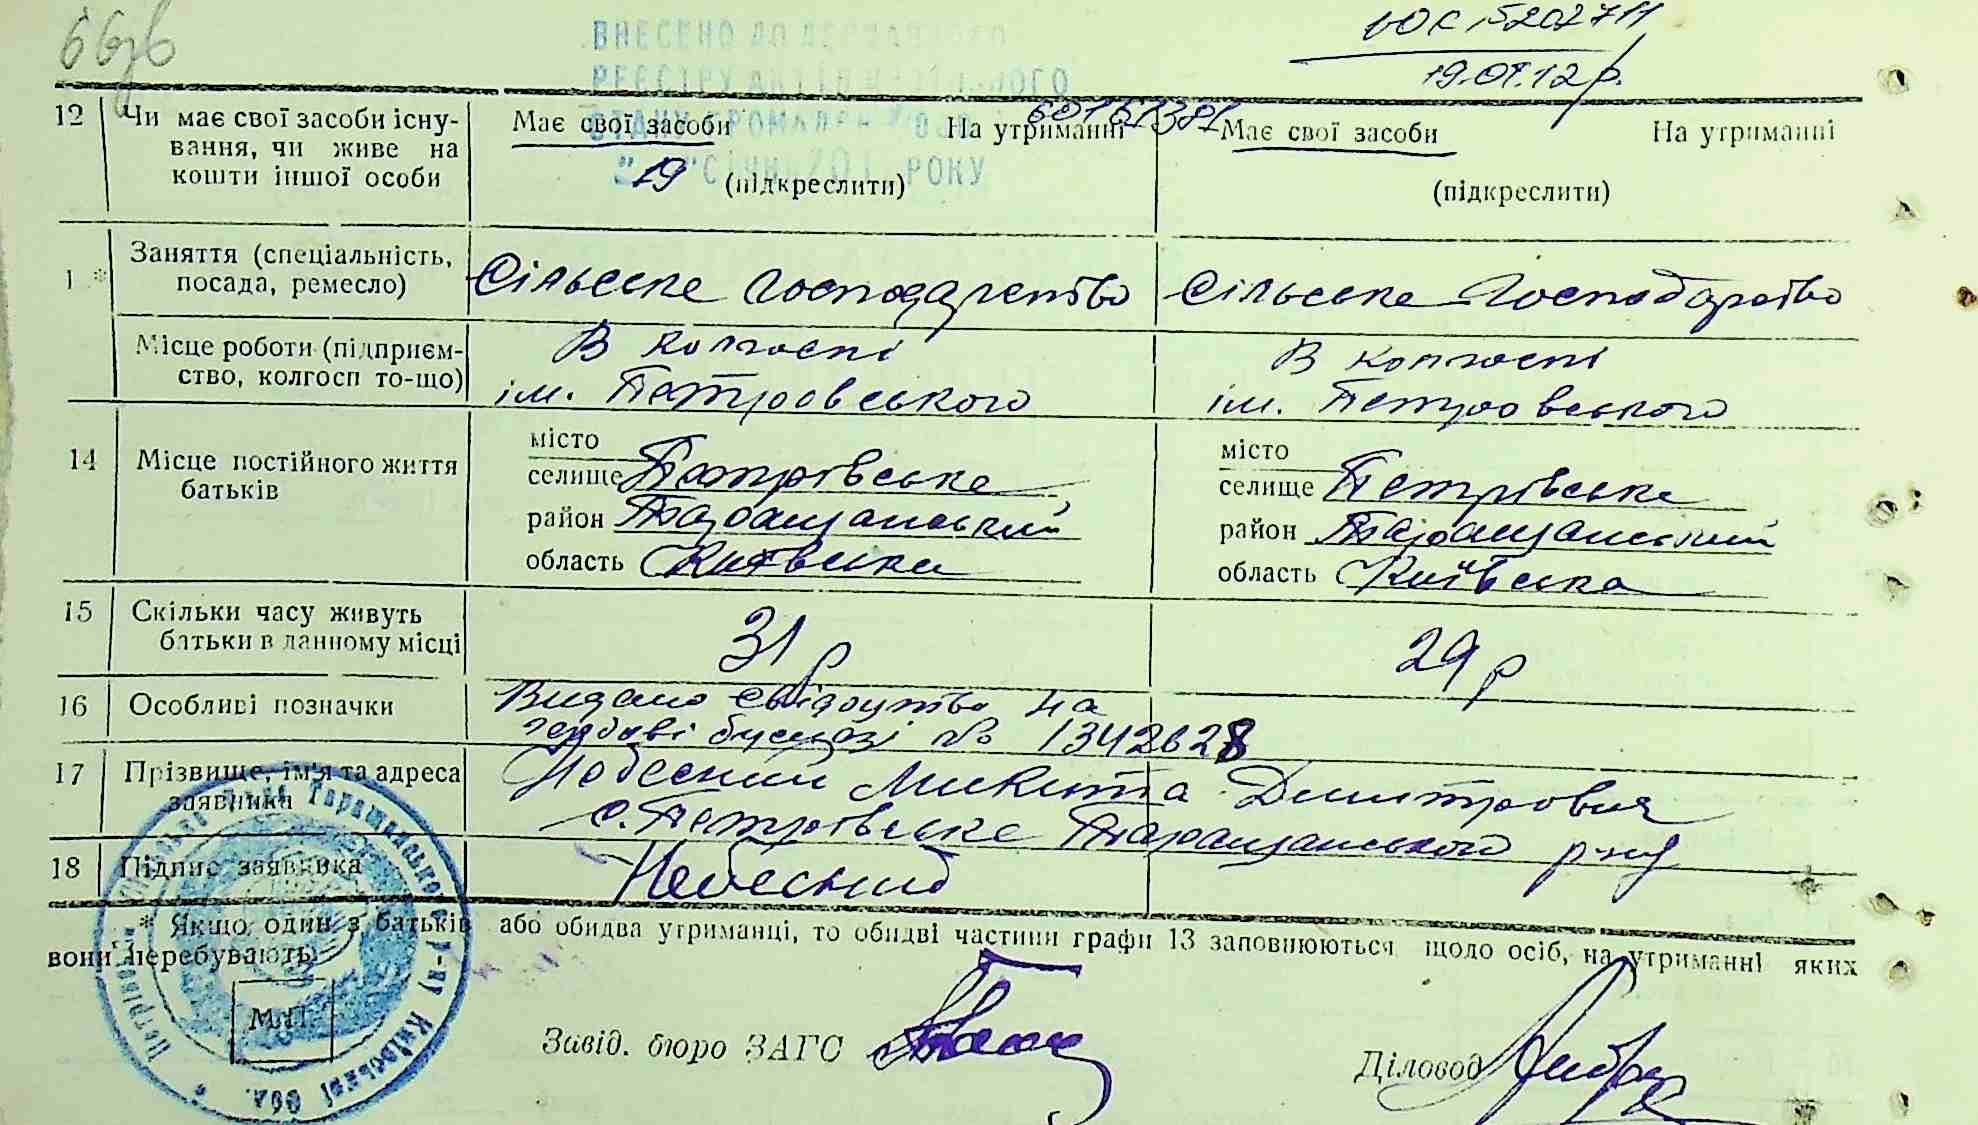 ВНЕСЕНО ДО ДЕРЖАВНОГО
РЕЄСТРУ АКТІВ ЦИВІЛЬНОГО
СТАНУ ГРОМАДЯН
19 СІЧНЯ 201 РОКУ
19.01.12р.
60161381
12 Чи має свої засоби існування, чи живе на кошти іншої особи
Має свої засоби На утриманні
(підкреслити)
Має свої засоби На утриманні
(підкреслити)
1 * Заняття (спеціальність, посада, ремесло)
Сільське господарство
Сільське господарство
Місце роботи (підприємство, колгосп то-що)
В колгоспі
ім. Петровського
В колгоспі
ім. Петровського
14 Місце постійного життя батьків
місто
селище Петрівське
район Таращанський
область Київська
місто
селище Петрівське
район Таращанський
область Київська
15 Скільки часу живуть батьки в данному місці
31 р
29 р
16 Особливі позначки
Видано свідоцтво на
гербові бумазі № 1342628
17 Прізвище, ім'я та адреса заявника
Небесний Микита Дмитрович
с. Петрівське Таращанського р-ну
18 Підпис заявника
Небесний
* Якщо один з батьків або обидва утриманці, то обидві частини графи 13 заповнюються щодо осіб, на утриманні яких
вони перебувають
М.П.
Завід. бюро ЗАГС
Діловод
Таращанського р-ну Київської Обл.